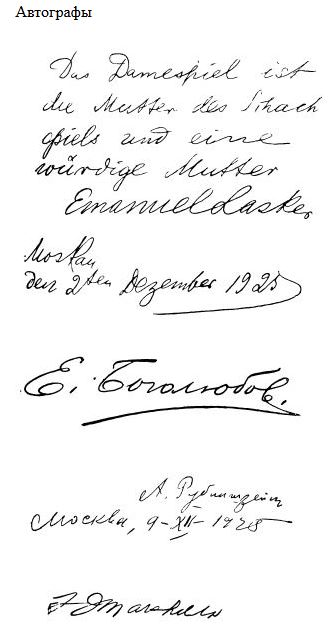 Автографы
Das Damespiel ist
die Mutter des Schach
spiels und eine
würdige Mutter
Emanuel Lasker
Moskau
den 2ten Dezember 1925
Е. Боголюбов.
А. Рубинштейн
Москва, 9-XII-1925